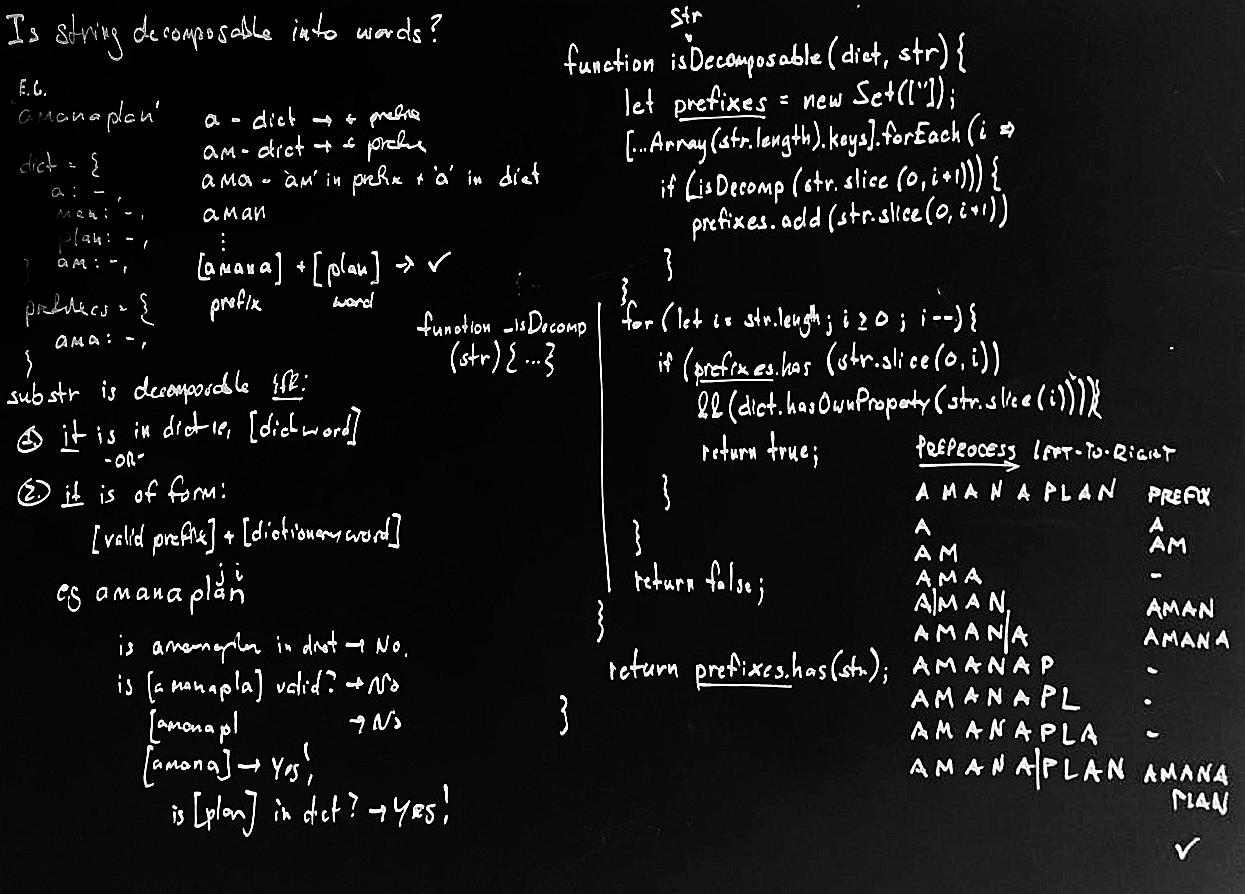 Is string decomposable into words?
E.G.
'amanaplan'
dict = {
a: -,
man: -,
plan: -,
am: -,
}
prefixes = {
ama: -,
}
a - dict → +
am - dict → +
ama - 'am' in prefix + 'a' in dict
aman
⋮
[amana] + [plan] → ✓
prefix word
substr is decomposable iff:
1. it is in dict ie, [dict word]
-OR-
2. it is of form:
[valid prefix] + [dictionary word]
j i
eg amanaplan
is in dict → No.
is [amanapla] valid? → No
[amanapl → No
[amana] → Yes!,
is [plan] in dict? → Yes!
Str
function isDecomposable(dict, str) {
let prefixes = new Set(['']);
[...Array(str.length).keys].forEach(i ⇒
if (_isDecomp(str.slice(0,i+1))) {
prefixes.add(str.slice(0,i+1))
}
}
function _isDecomp
(str) {...}
for (let i = str.length; i ≥ 0; i--) {
if (prefixes.has (str.slice(0,i))
&& (dict.hasOwnProperty(str.slice(i)))) {
return true;
}
}
return false;
}
return prefixes.has(str);
}
PREPROCESS LEFT-TO-RIGHT
AMANAPLAN PREFIX
A A
AM AM
AMA -
A|MAN, AMAN
AMAN|A AMANA
AMANAP -
AMANAPL -
AMANAPLA -
AMANA|PLAN AMANA
PLAN
✓